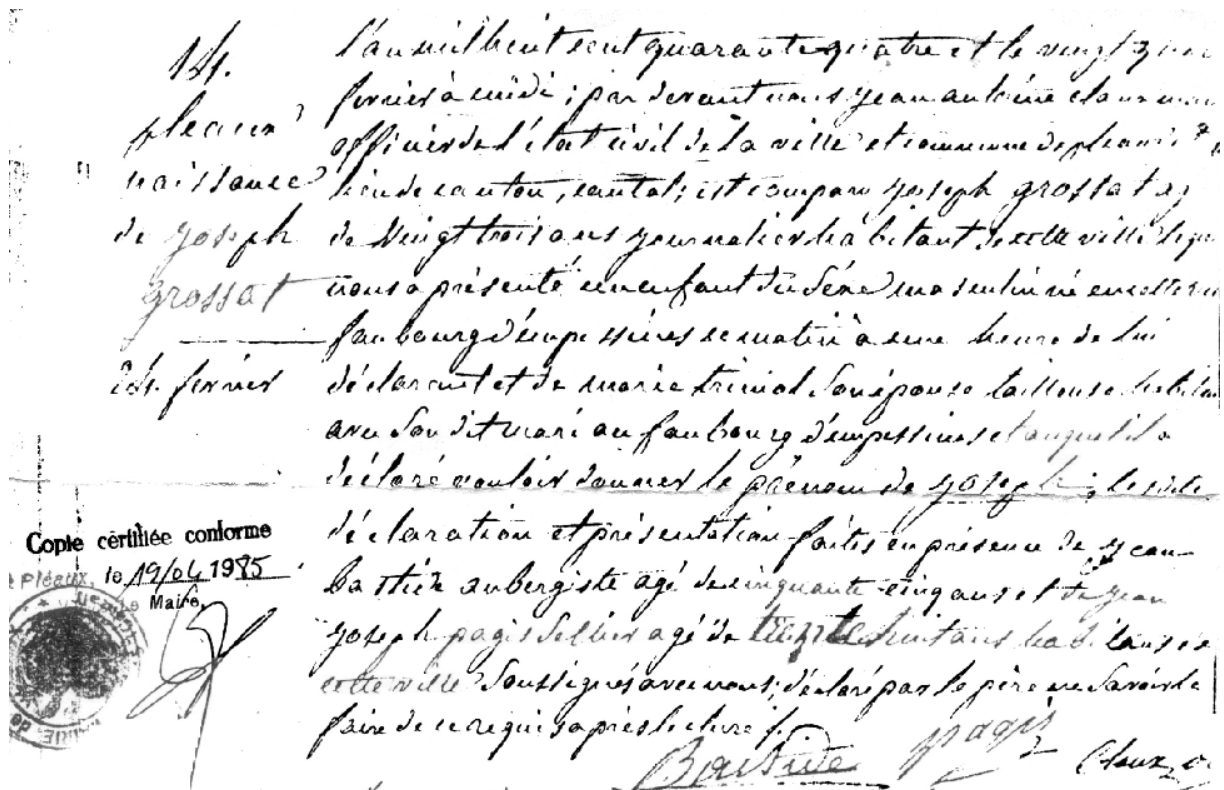 14.
pleaux
naissance
de joseph
grossat
24. fevrier
l'an mil huit cent quarante quatre et le vingt quat
fevrier à midi ; par devant nous jean antoine
officier de l'état civil de la ville et commune de pleaux
lieu de canton, cantal ; est comparu joseph grossat ag
de vingt trois ans journalier habitant de cette ville lequ
nous a présenté un enfant du séxe masculin né en cette
faubourg d'empessines ce matin à une heure de lui
déclarant et de marie son épouse tailleuse habitan
avec son dit mari au faubourg d'empessines et auquel il a
déclaré vouloir donner le prénom de joseph ; les
déclaration et présentation faites en présence de jean
bastide aubergiste agé de cinquante cinq ans et de jean
joseph pagis sellier agé de huit ans habitans de
cette ville soussignés avec nous ; déclaré par le père ne savoir le
faire de ce requis après lecture /.
Bastide pagis
Copie certifiée conforme
Pleaux, le 19/04 1985
Maire,